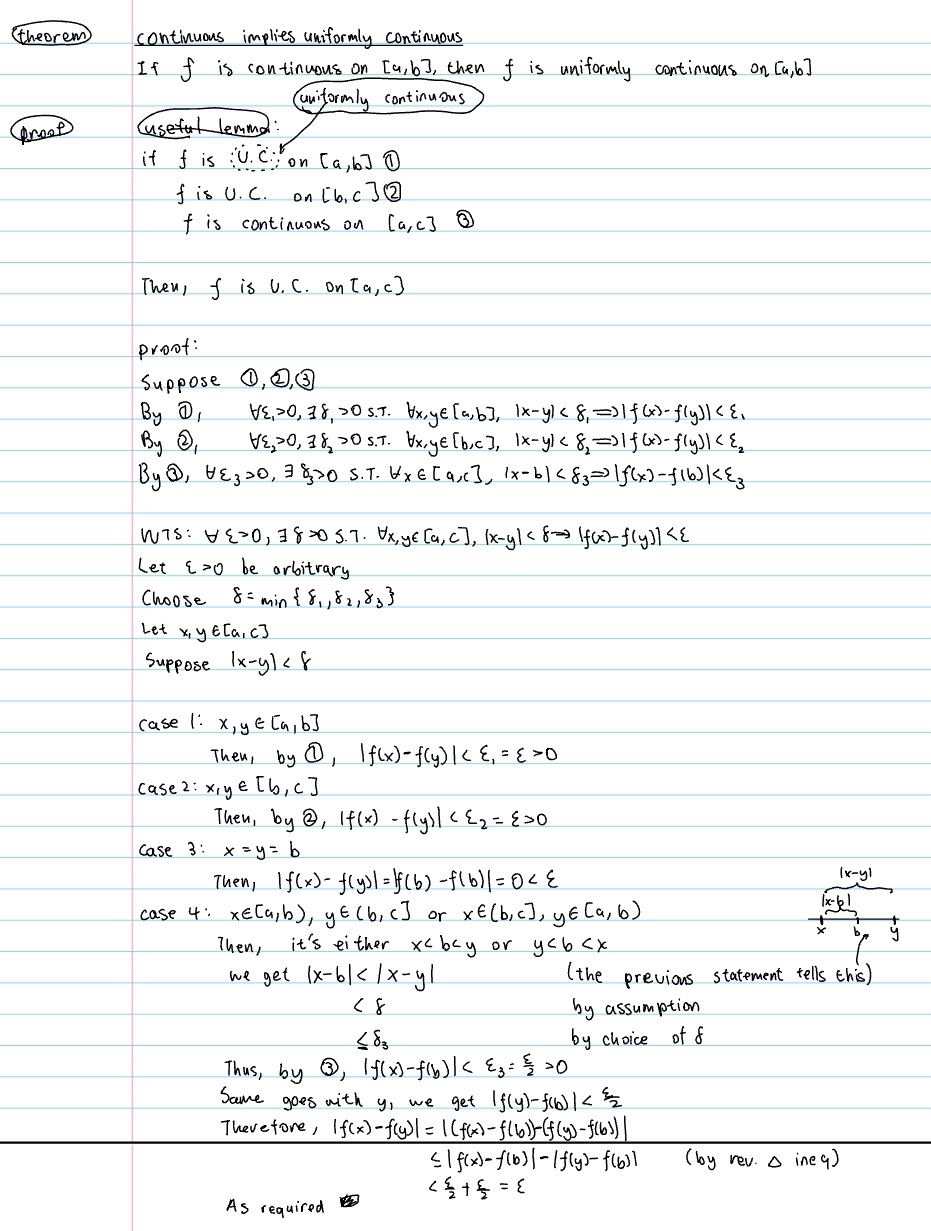 theorem continuous implies uniformly continuous
If f is continuous on [a,b], then f is uniformly continuous on [a,b]
uniformly continuous
proof useful lemma:
if f is U.C. on [a,b] ①
f is U.C. on [b,c] ②
f is continuous on [a,c] ③
Then, f is U.C. on [a,c]
proof:
Suppose ①,②,③
By ①, ∀ε₁>0, ∃δ₁>0 S.T. ∀x,y∈[a,b], |x-y|<δ₁⟹|f(x)-f(y)|<ε₁
By ②, ∀ε₂>0, ∃δ₂>0 S.T. ∀x,y∈[b,c], |x-y|<δ₂⟹|f(x)-f(y)|<ε₂
By ③, ∀ε₃>0, ∃δ₃>0 S.T. ∀x∈[a,c], |x-b|<δ₃⟹|f(x)-f(b)|<ε₃
WTS: ∀ε>0, ∃δ>0 S.T. ∀x,y∈[a,c], |x-y|<δ⟹|f(x)-f(y)|<ε
Let ε>0 be arbitrary
Choose δ=min{δ₁,δ₂,δ₃}
Let x,y∈[a,c]
Suppose |x-y|<δ
case 1: x,y∈[a,b]
Then, by ①, |f(x)-f(y)|<ε₁=ε>0
case 2: x,y∈[b,c]
Then, by ②, |f(x)-f(y)|<ε₂=ε>0
case 3: x=y=b
Then, |f(x)-f(y)|=|f(b)-f(b)|=0<ε
|x-y|
|x-b|
x b y
case 4: x∈[a,b), y∈(b,c] or x∈(b,c], y∈[a,b)
Then, it's either x<b<y or y<b<x
we get |x-b|<|x-y| (the previous statement tells this)
<δ by assumption
≤δ₃ by choice of δ
Thus, by ③, |f(x)-f(b)|<ε₃=ε/2>0
Same goes with y, we get |f(y)-f(b)|<ε/2
Therefore, |f(x)-f(y)|=|(f(x)-f(b))-(f(y)-f(b))|
≤|f(x)-f(b)|-|f(y)-f(b)| (by rev. △ ineq)
<ε/2+ε/2=ε
As required